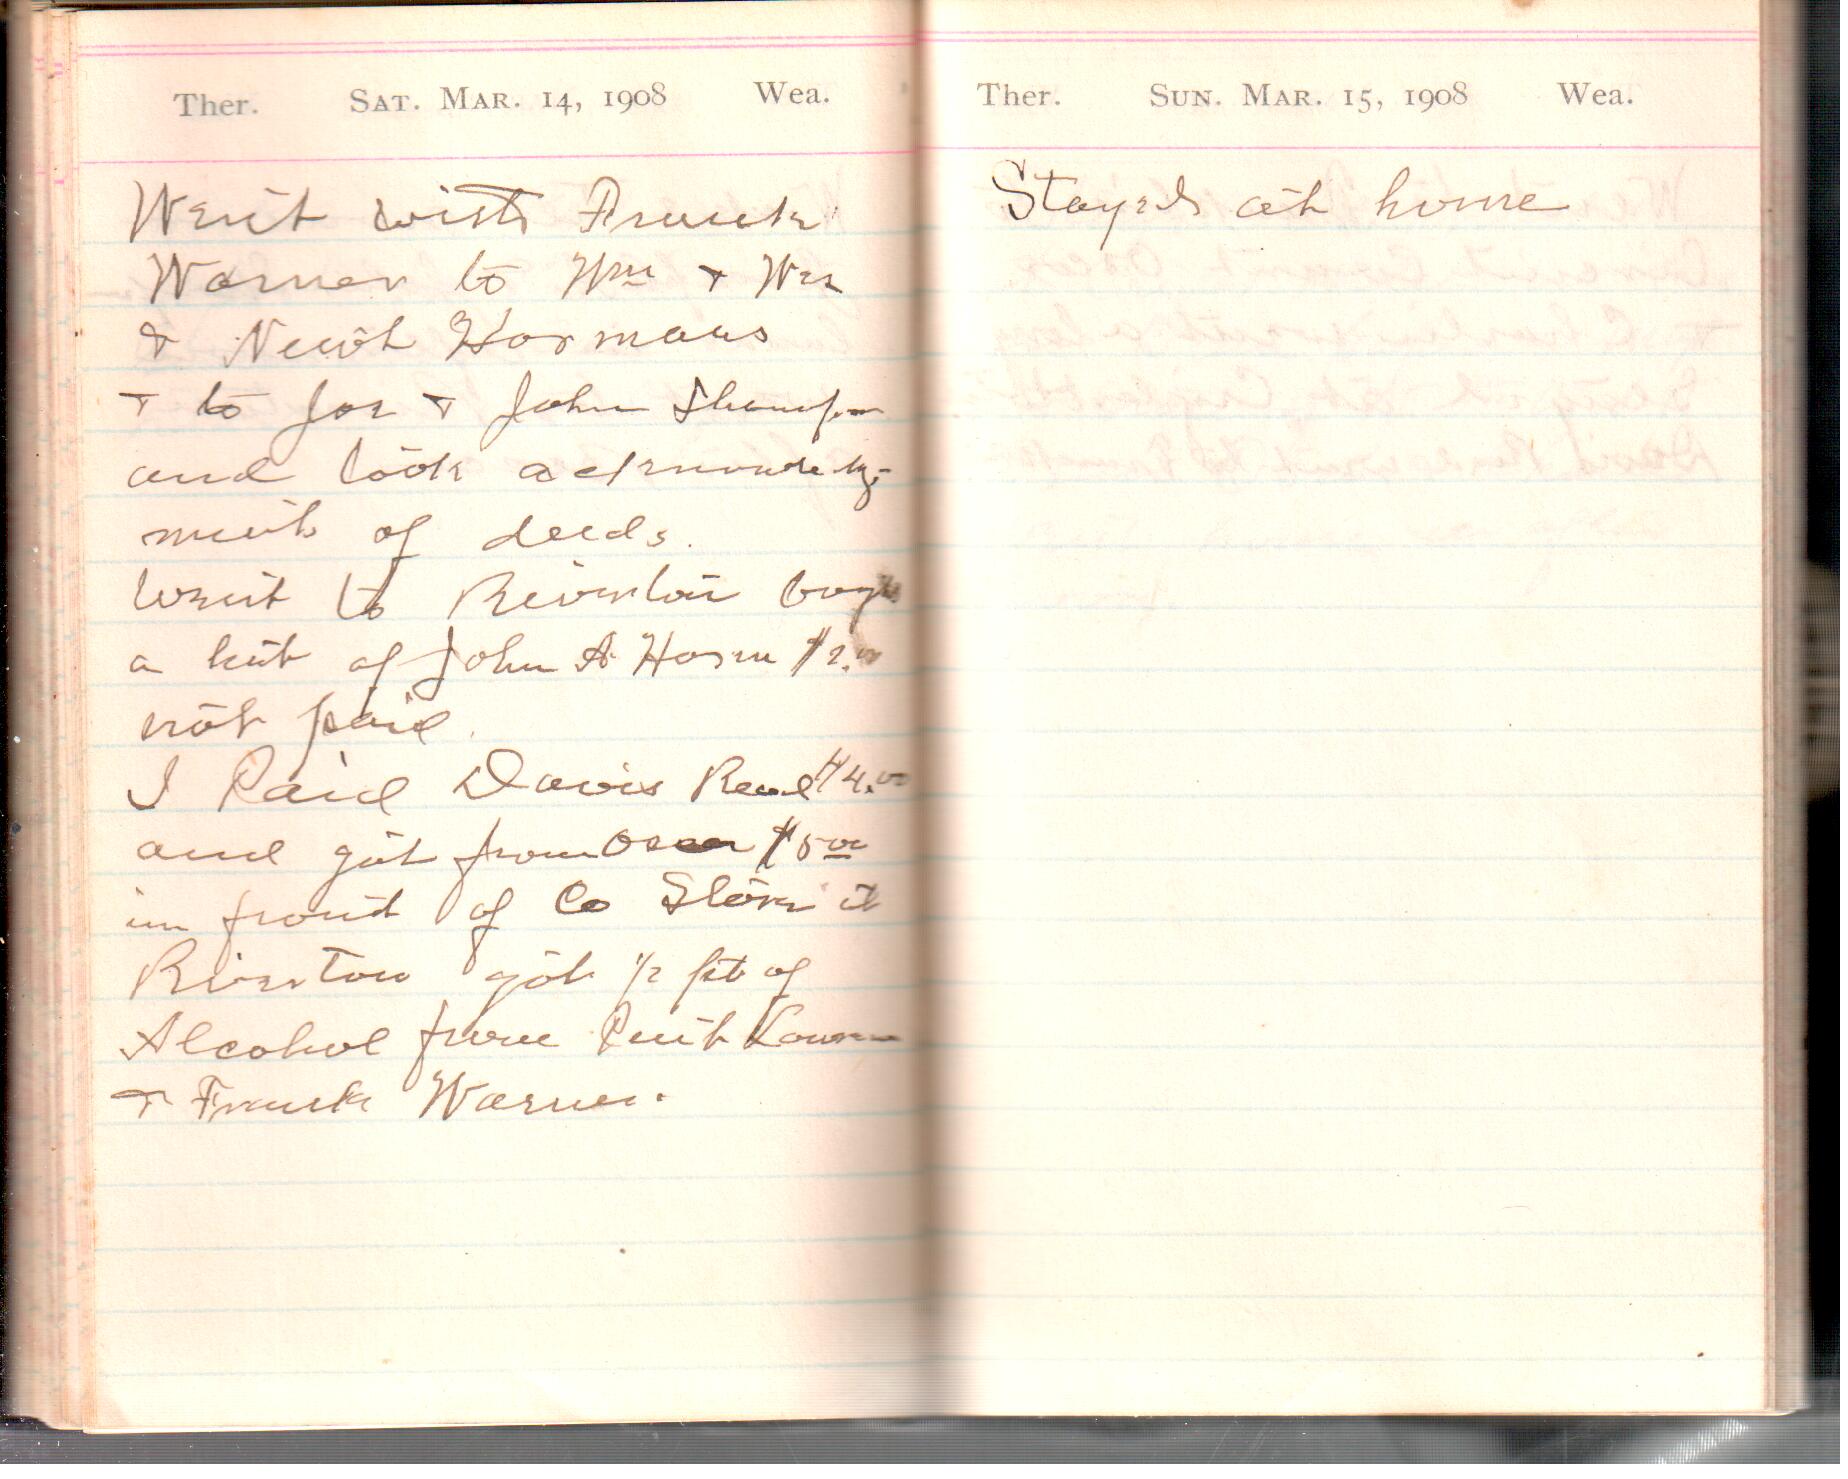 Ther. SAT. MAR. 14, 1908 Wea.
Went with Frank
Warner to Wm & Wes
& Newt Hormans
& to Joe & John
and took acknowledg-
ment of deeds.
Went to Riverton
a hat of John A Horn $2.00
not paid.
I Paid Davis Read $4.00
and got from Oscar $5 00
in front of Co Store at
Riverton got 1/2 pt of
Alcohol from
& Frank Warner.
Ther. SUN. MAR. 15, 1908 Wea.
Stayed at home